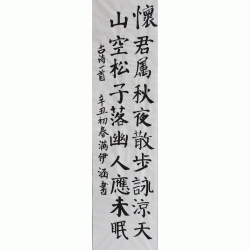 懷君属秋夜散步詠涼天
山空松子落幽人應未眠
古诗一首 辛丑初春满伊涵書